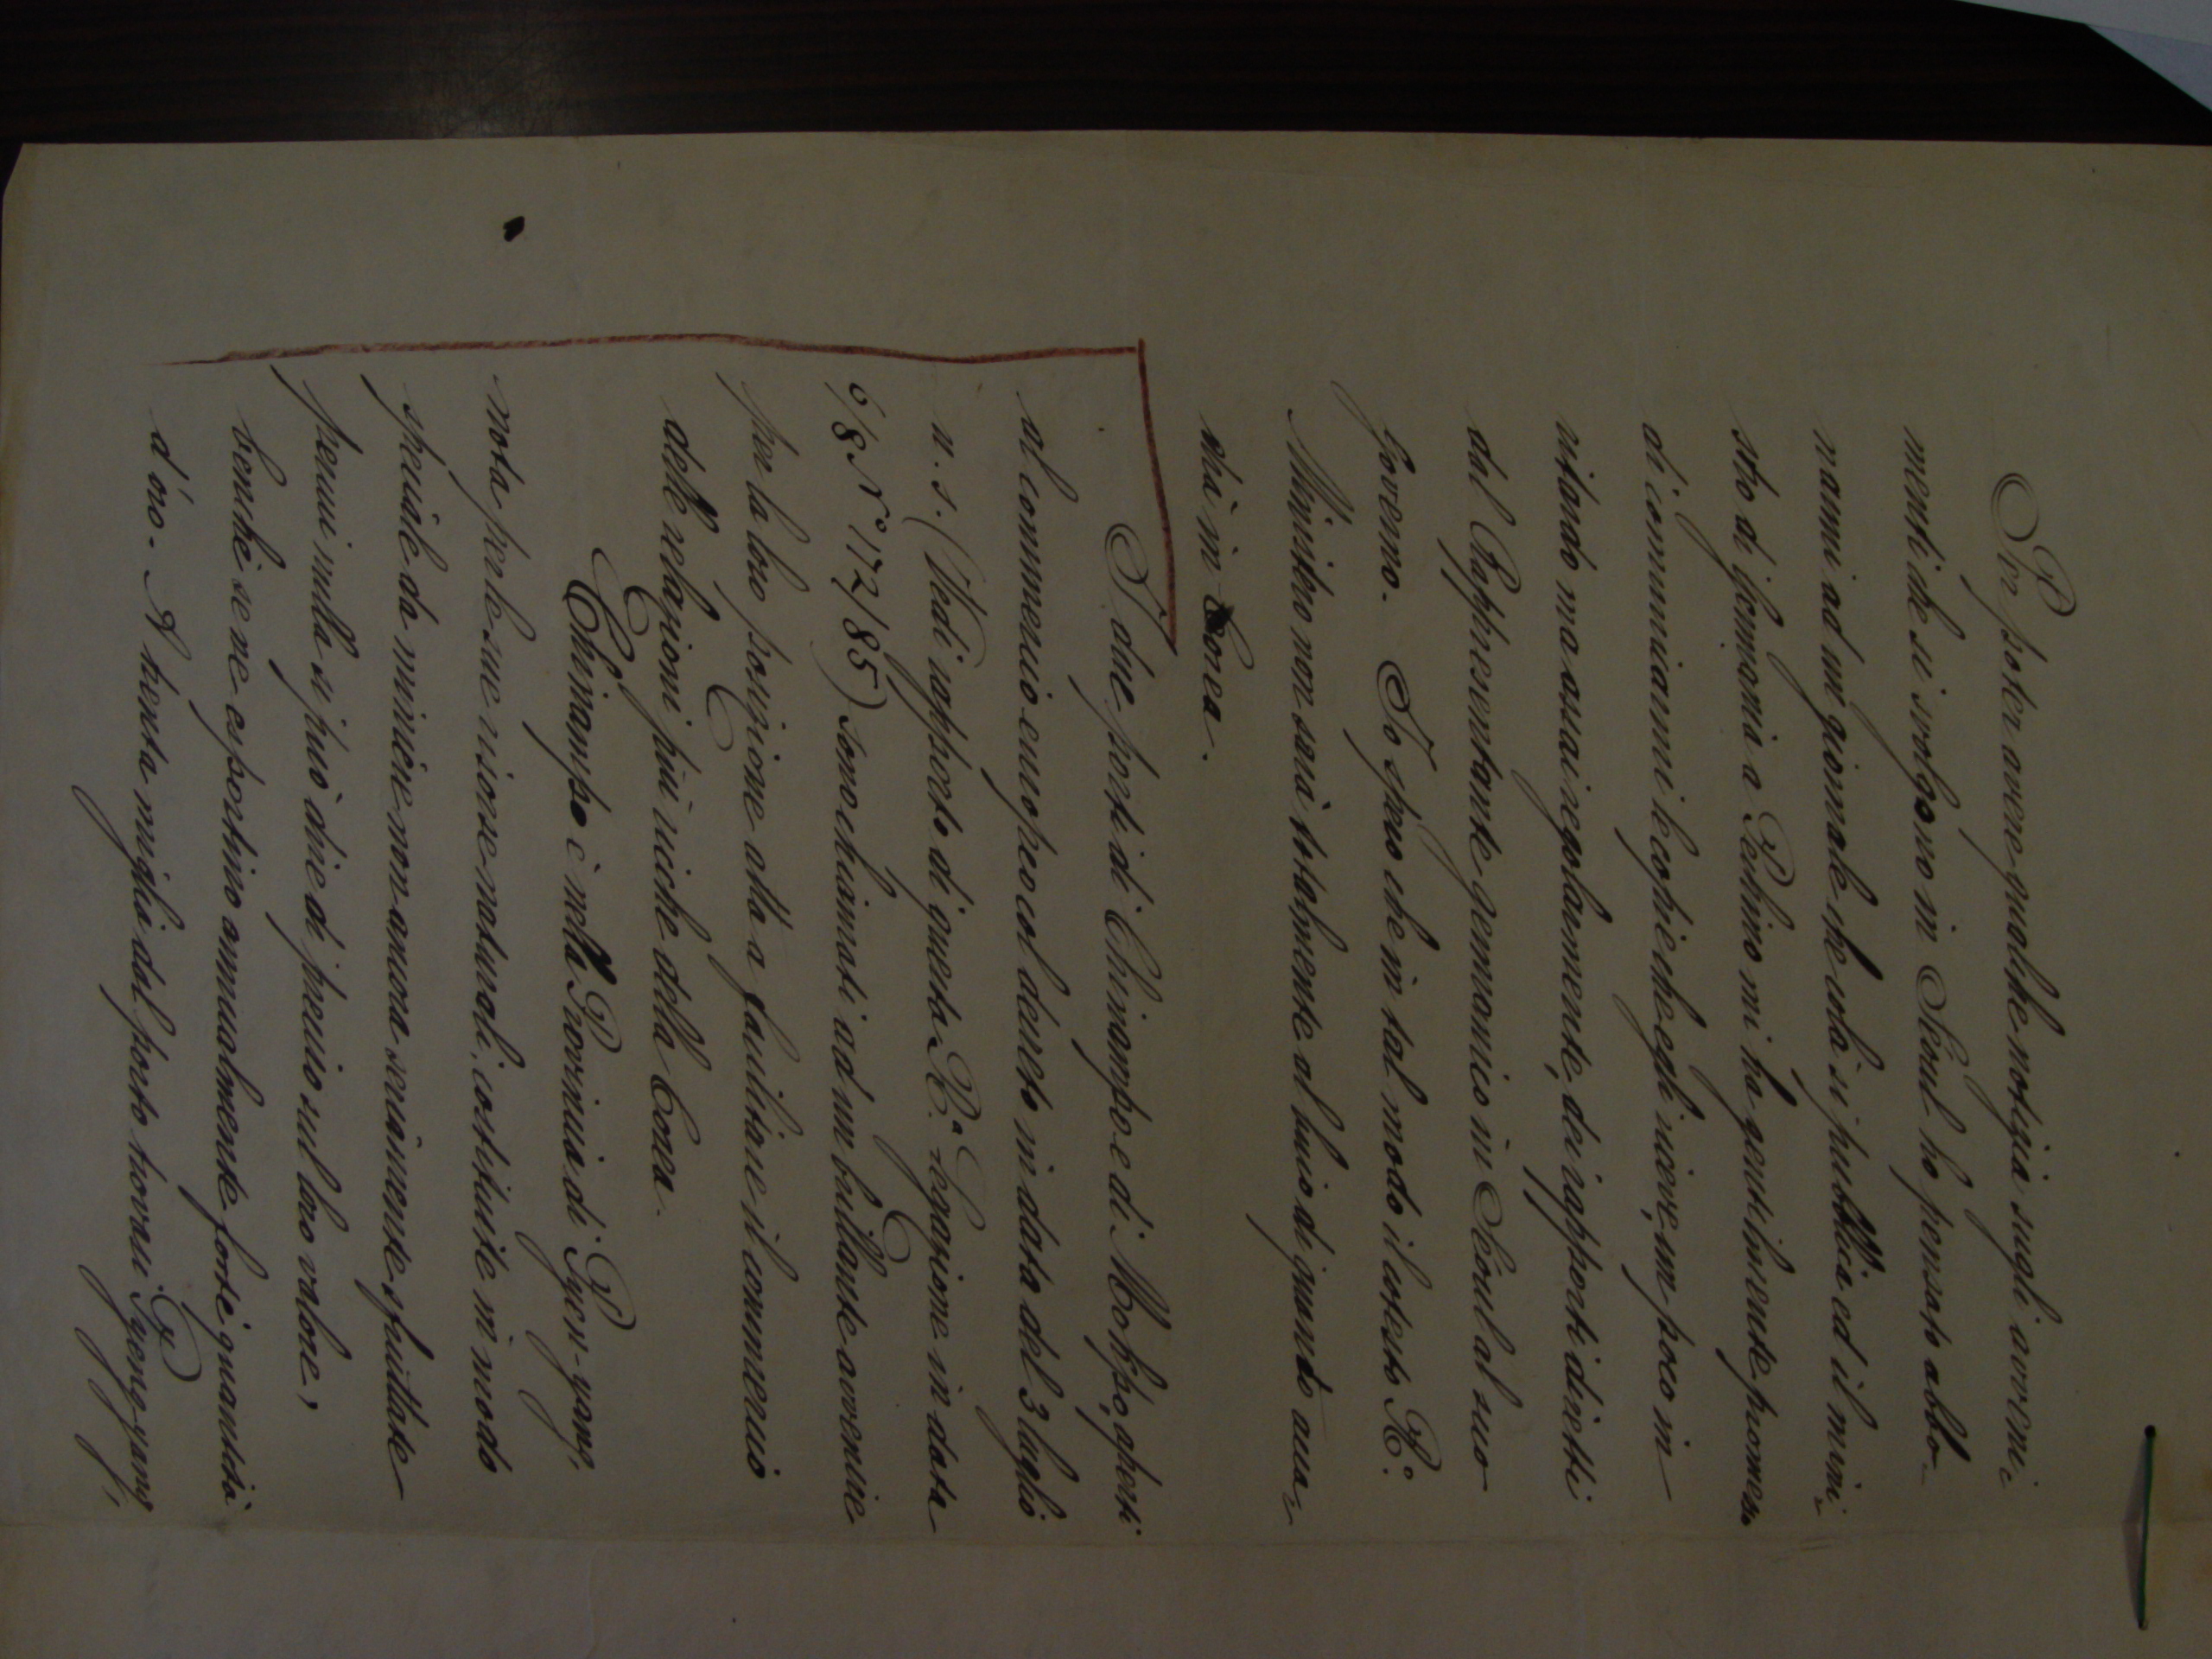 Per poter avere qualche notizia sugli avveni-
menti che si svolgono in Seoul ho pensato abbo-
narmi ad un giornale che colà si pubblica ed il mini-
stro di Germania a Pechino mi ha gentilmente promesso
di comunicarmi le copie che egli riceve, un poco in
ritardo ma assai regolarmente, dei rapporti diretti
dal Rappresentante germanico in Seoul al suo
Governo. Io spero che in tal modo il cotesto R.o
Ministero non sarà totalmente al buio di quanto acca-
drà in Corea.
I due porti di Chinampo e di Mokpo, aperti
al commercio europeo col decreto in data del 3 luglio
u. s. (Vedi rapporto di questa R.a Legazione in data
6/8 No 172/85) sono chiamati ad un brillante avvenire
per la loro posizione atta a facilitare il commercio
delle relazioni più ricche della Corea.
Chinampo è nella Provincia di Pyen-yang,
nota per le sue risorse naturali, costituite in modo
speciale da miniere non ancora seriamente sfruttate
per cui nulla si può dire di preciso sul loro valore,
benché se ne esportino annualmente forti quantità
d'oro. A trenta miglia dal porto trovasi Pyeng-yang